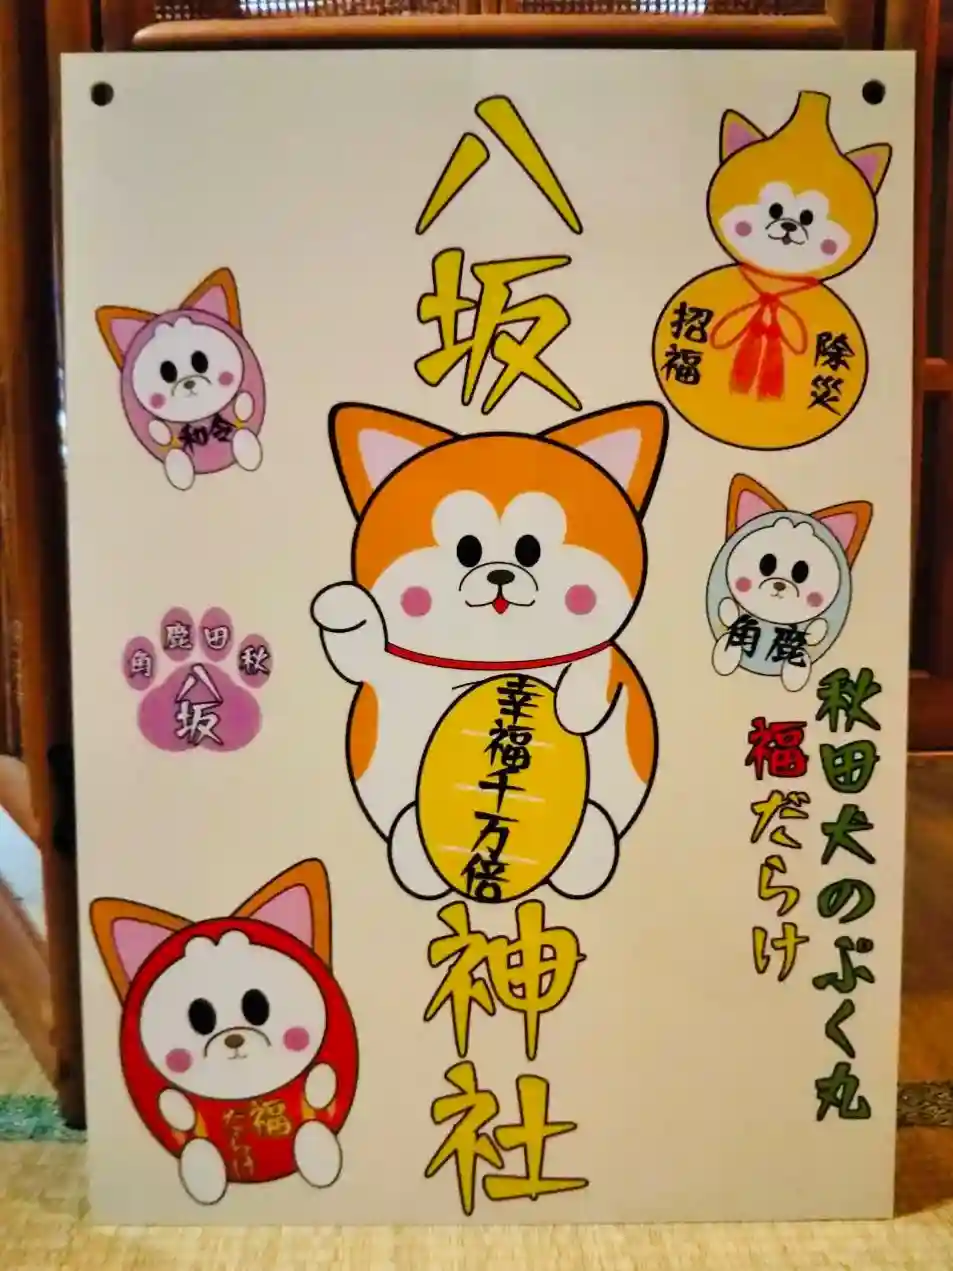 八坂
神社
招福
除災
和令
角鹿
角鹿田秋
八坂
幸福千万倍
秋田犬のぷく丸
福だらけ
福
だらけ